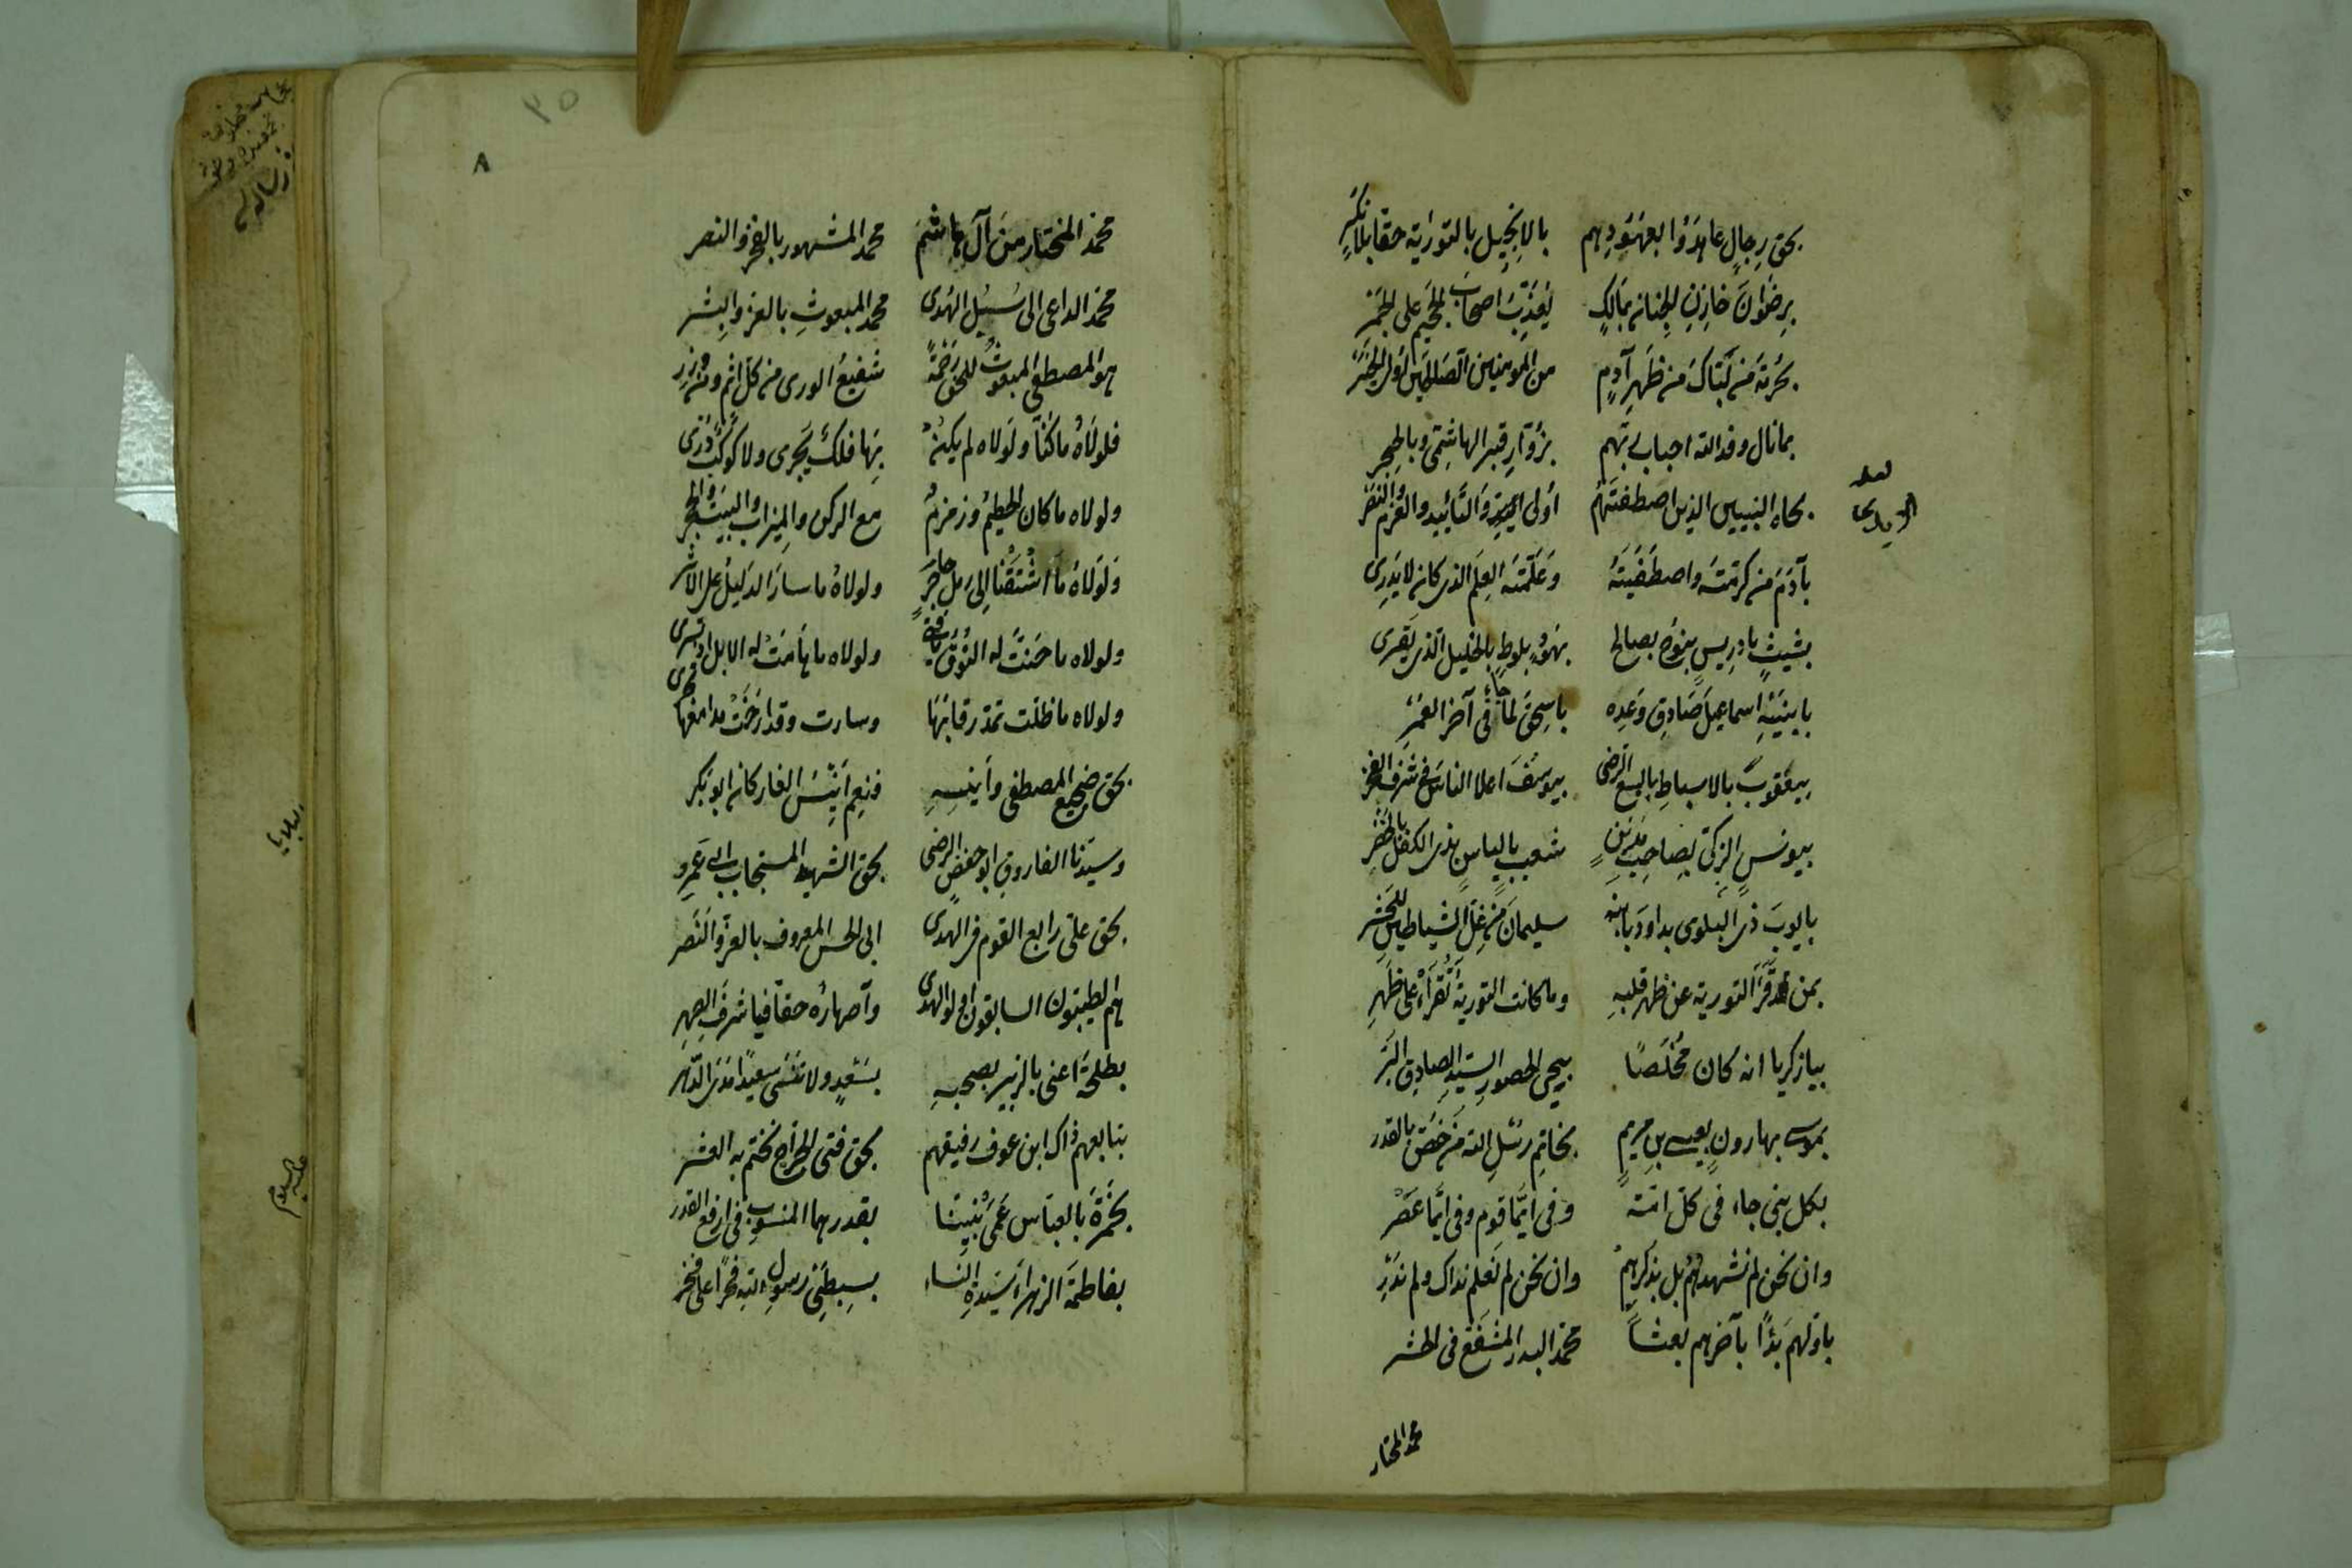 بحق رجال عاهدوا بعهودهم بالانجيل بالتورية حقا بلا نكر
برضوان خازن الجنان بمالك يعذب اصحاب الجحيم على الجمر
بحرمة من لباك من ظهر آدم من المومنين الصالحين
بما نال وفد الله احباب ربهم بزوار قبر الهاشمي وبالحجر
بجاه النبيين الذين اصطفيتهم اولى والتائيد والعزم والنصر
بآدم من كرمته واصطفيته وعلمته العلم الذى كان لا يدرى
بشيث بادريس بنوح بصالح بهود بلوط بالخليل الذى يقرى
بابنيه اسماعيل صادق وعده باسحق لما جاء فى آخر العمر
بيعقوب بالاسباط باليسع الرضى بيوسف اعلا الناس فى شرف
بيونس الزكى بصاحب مدين شعيب بالياس بذى الكفل بالخضر
بايوب ذى البلوى بداود بابنه سليمان من غل الشياطين للحشر
بمن قرأ التورية عن ظهر قلبه وما كانت التورية تقرأ على ظهر
بيا زكريا انه كان مخلصا بيحيى الحصور السيد الصادق البر
بموسى بهارون بعيسى بن مريم بخاتم رسل الله من خص بالقدر
بكل نبى جاء فى كل امة وفى ايما قوم وفى ايما عصر
وان نحن لم نشهدهم بل بذكرهم وان نحن لم نعلم نداك ولم ندر
باولهم بدأ بآخرهم بعثا محمد البدر المشفع فى الحشر
محمد المختار
٨
محمد المختار من آل هاشم محمد المشهور بالفخر والنصر
محمد الداعى الى سبيل الهدى محمد المبعوث بالعز والبشر
هو المصطفى المبعوث للخلق رحمة شفيع الورى من كل اثم ومن وزر
فلولاه ما كنا ولولاه لم يكن بها فلك يجرى ولا كوكب درى
ولولاه ما كان الحطيم وزمزم مع الركن والميزاب والبيت والحجر
ولولاه ما اشتقنا الى رمل حاجر ولولاه ما سار الدليل على الاثر
ولولاه ما حنت له النوق ولولاه ما هامت له الابل اذ تسرى
ولولاه ما ظلت تمد رقابها وسارت وقد ارخت مدامعها تجرى
بحق ضجيع المصطفى وأنيسه فنعم انيس الغار كان ابو بكر
وسيدنا الفاروق ابو حفص الرضى بحق الشهيد المستجاب ابى عمرو
بحق على رابع القوم فى الهدى ابى الحسن المعروف بالعز والنصر
هم الطيبون السابقون اولو الهدى وأصهاره حقا فيا شرف الصهر
بطلحة اعنى بالزبير بصحبه بسعد ولا تنسى سعيدا مدى الدهر
بتابعهم ذاك ابن عوف رفيقهم بحق فتى الجراح نختم به العشر
بحمزة بالعباس عمى نبينا بقدرهما المنسوب فى ارفع القدر
بفاطمة الزهراء سيدة النساء بسبطى رسول الله فخرا على فخر